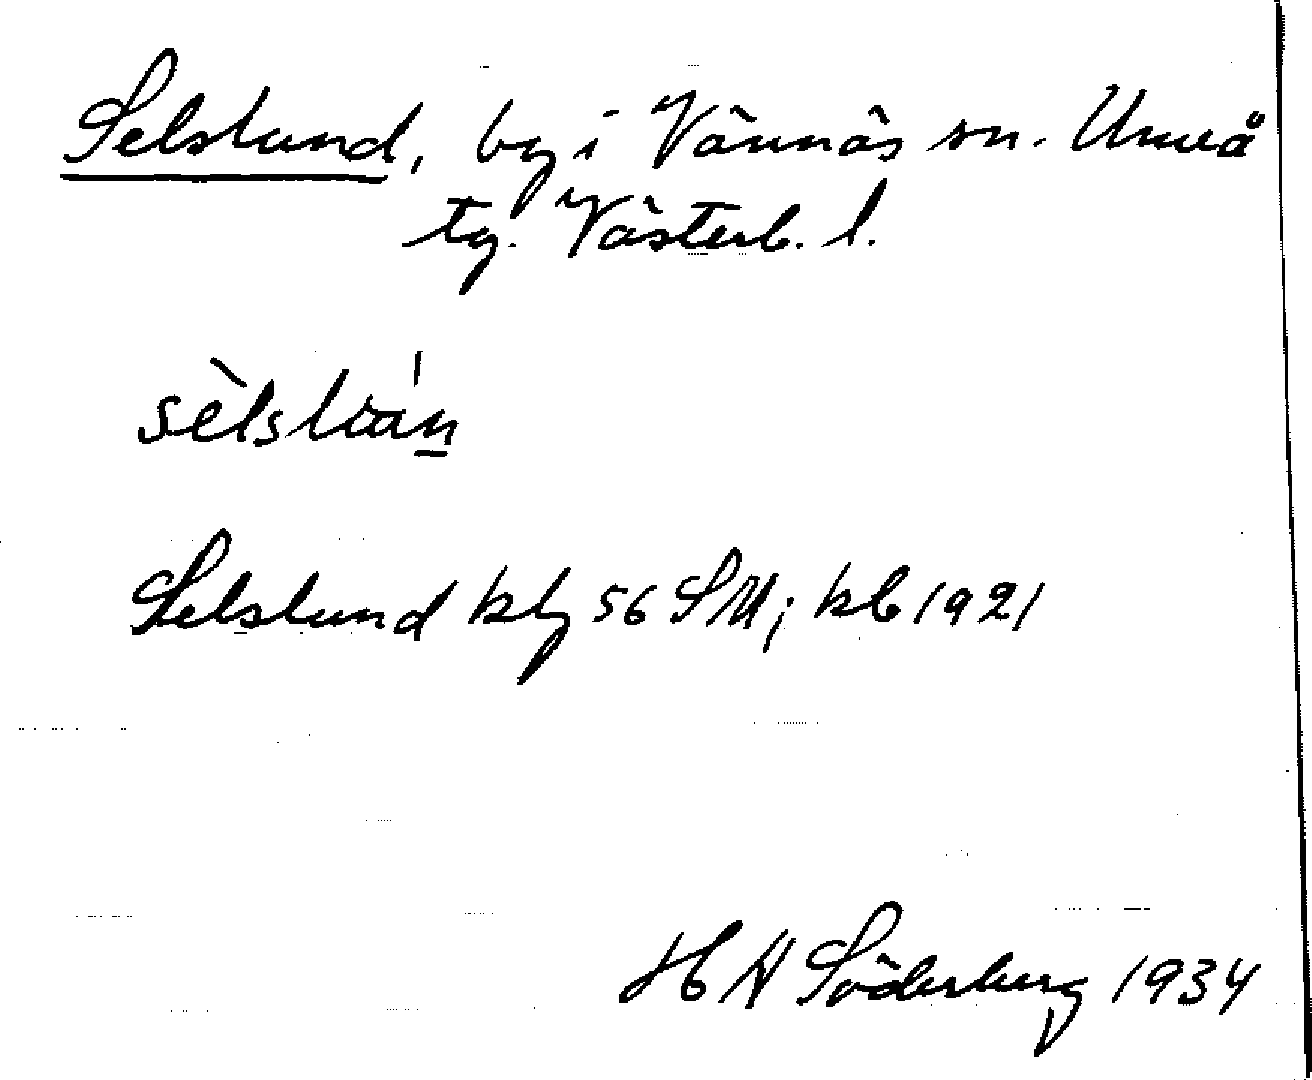 Selslund, by i Vännäs sn. Umeå
tg. Västerb. l.
Selslund kbg 56 SM; kb 1921
H A Söderberg 1934